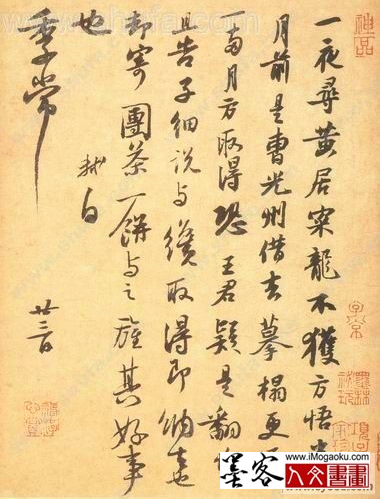 一夜尋黄居寀龍不獲方悟半
月前是曹光州借去摹榻更須
一兩月方取得恐王君疑是翻悔
且告子細説与纔取得即納去也
却寄團茶一餅与之旌其好事
也
軾白
季常
廿三日
墨客
www.iMogaoku.com
人文書畫